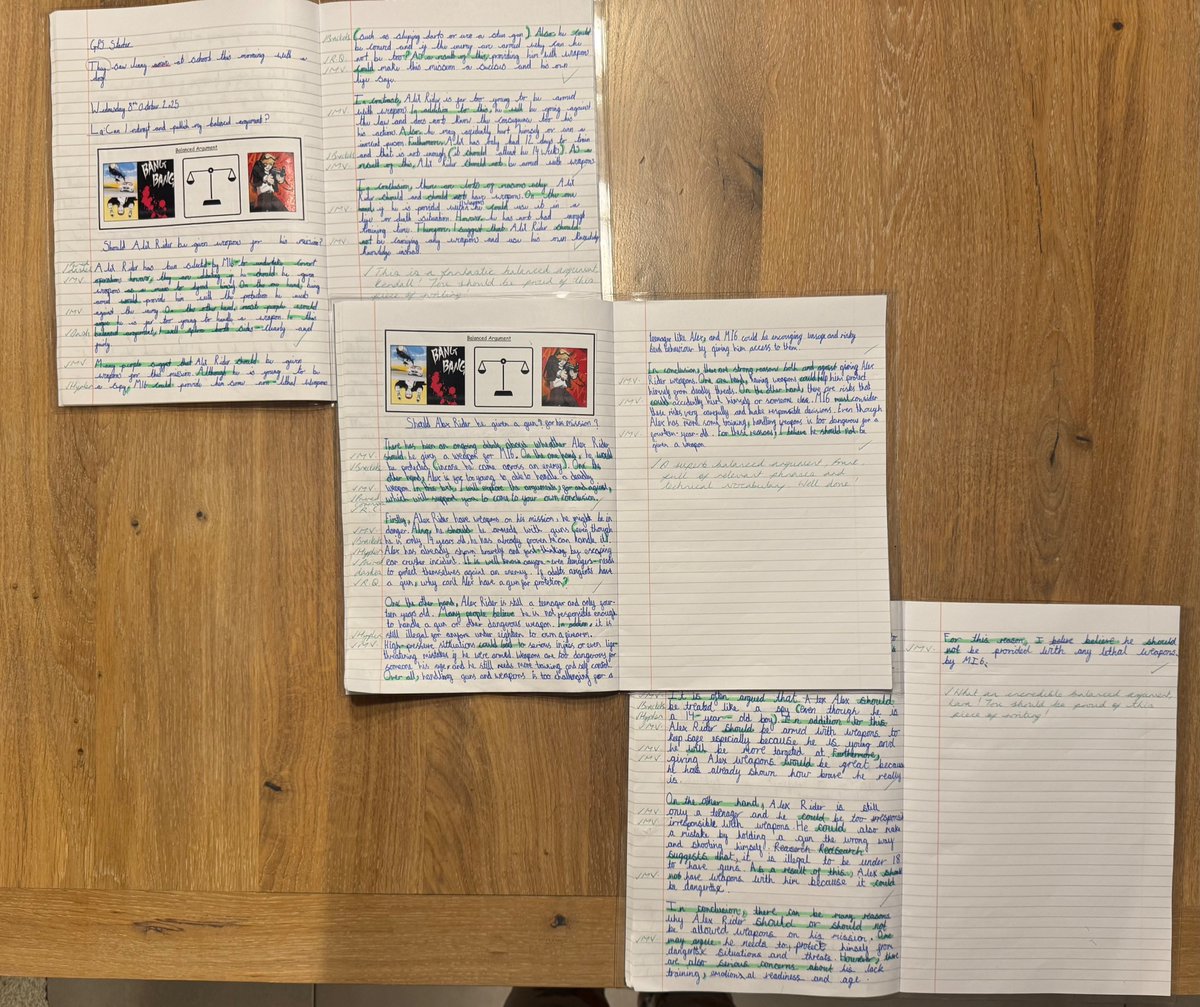 GPS Starter
They saw Lucy at school this morning with a
dog!
Wednesday 8th October 2025
Lo: Can I redraft and publish my balanced argument?
Balanced Argument
BANG
BANG
Should Alex Rider be given weapons for his mission?
Alex Rider has been selected by MI6 to undertake covert
operations however, they are debating if he should be given
weapons as a mean to defend himself. On the one hand, being
armed would provide him with the protection he needs
against the enemy. On the other hand, most people would
argue he is far too young to handle a weapon. In this
balanced argument, I will explore both sides - clearly and
fairly.
Many people suggest that Alex Rider should be given
weapons for this mission. Although he is going to be
a spy, MI6 could provide him some non-lethal weapons
Brackets
R.Q.
MV
(such as sleeping darts or use a stun gun). Also, he should
be covered and if the enemy are armed why can he
not be too? As a result of this, providing him with weapons
could make this mission a success and his own
life safe.
In contrast, Alex Rider is far too young to be armed
with weapons. In addition to this, he will be going against
the law and does not know the consequences for his
his actions. Also, he may accidently hurt himself or even a
innocent person. Furthermore, Alex has only had 12 days to train
and that is not enough (it should atleast be 14 weeks). As a
result of this, Alex Rider should not be armed with weapons
In conclusion, there are lots of reasons why Alex
Rider should and should not have weapons. On the one
hand if he is provided weapons he could use it in a
life or death situation. However, he has not had enough
training time. Therefore, I suggest that Alex Rider should
not be carrying any weapons and use his own knowledge
knowledge instead.
This is a fantastic balanced argument,
Kendall! You should be proud of this
piece of writing
Balanced Argument
BANG
BANG
Should Alex Rider be given a gun? for his mission?
There has been an ongoing debate about wheather Alex Rider
should be given a weapon for MI6. On the one hand, he would
be protected (incase he came across an enemy). One the
other hand, Alex is far too young to able to handle a deadly
weapon. In this text, I will explore the arguments, for and against,
which will support you to come to your own conclusion.
Firstly, Alex Rider have weapons on his mission, he might be in
danger. Also, he should be armed with guns (even though
he is only 14 years old, he has already proven he can handle it).
Alex has already shown bravery and quick-thinking by escaping
car crusher incident. It is well known anyone - even teenagers - needs
to protect themselves against an enemy. If adults argents have
a gun, why cant Alex have a gun for protetion?
One the other hand, Alex Rider is still a teenager and only four-
teen years old. Many people believe he is not responsible enough
to handle a gun or other dangerous weapon. In addition, it is
still illegal for anyone under eighteen to own a firearm.
High-pressure situations could lead to serious injries or even life-
threatening mistakes if he were armed. Weapons are too dangerous for
someone his age and he still needs more training and self control.
Over all, handling guns and weapons is too challenging for a
teenager like Alex, and MI6 could be encouraging unsafe and risky
behaviour by giving him access to them.
In conclusion, there are strong reasons both and against giving Alex
Rider weapons. One one hand, having weapons could help him protect
himself from deadly threats. On the other hand there are risks that
could accidently hurt himself or someone else. MI6 must consider
these risks very carefully and make responsible decisions. Even though
Alex has more some training, handling weapons is too dangerous for a
fourteen-year-old. For these reasons, I believe he should not be
given a weapon.
A superb balanced argument, Annie
full of relevant phrases and
technical vocabulary. Well done!
It is often argued that Alex Alex should
be treated like a spy (even though he is
a 14-year-old boy). In addition to this
Alex Rider should be armed with weapons to
keep safe especially because he is young and
he will be more targeted at. Furthermore,
giving Alex weapons would be great because
he has already shown how brave he really
is.
On the other hand, Alex Rider is still
only a teenager and he could be too irresponsible
irresponsible with weapons. He could also make
a mistake by holding a gun the wrong way
and shooting himself. Research
suggests that, it is illegal to be under 18
to have guns. As a result of this, Alex should
not have weapons with him because it could
be dangerous.
In conclusion, there can be many reasons
why Alex Rider should or should not
be allowed weapons on his mission. One
may argue he needs to protect himself from
dangerous situations and threats. However, there
are also serious concerns about his lack
training, emotional readiness and age.
For this reason, I belive believe he should
not be provided with any lethal weapons
by MI6.
What an incredible balanced argument,
Liam! You should be proud of this
piece of writing!